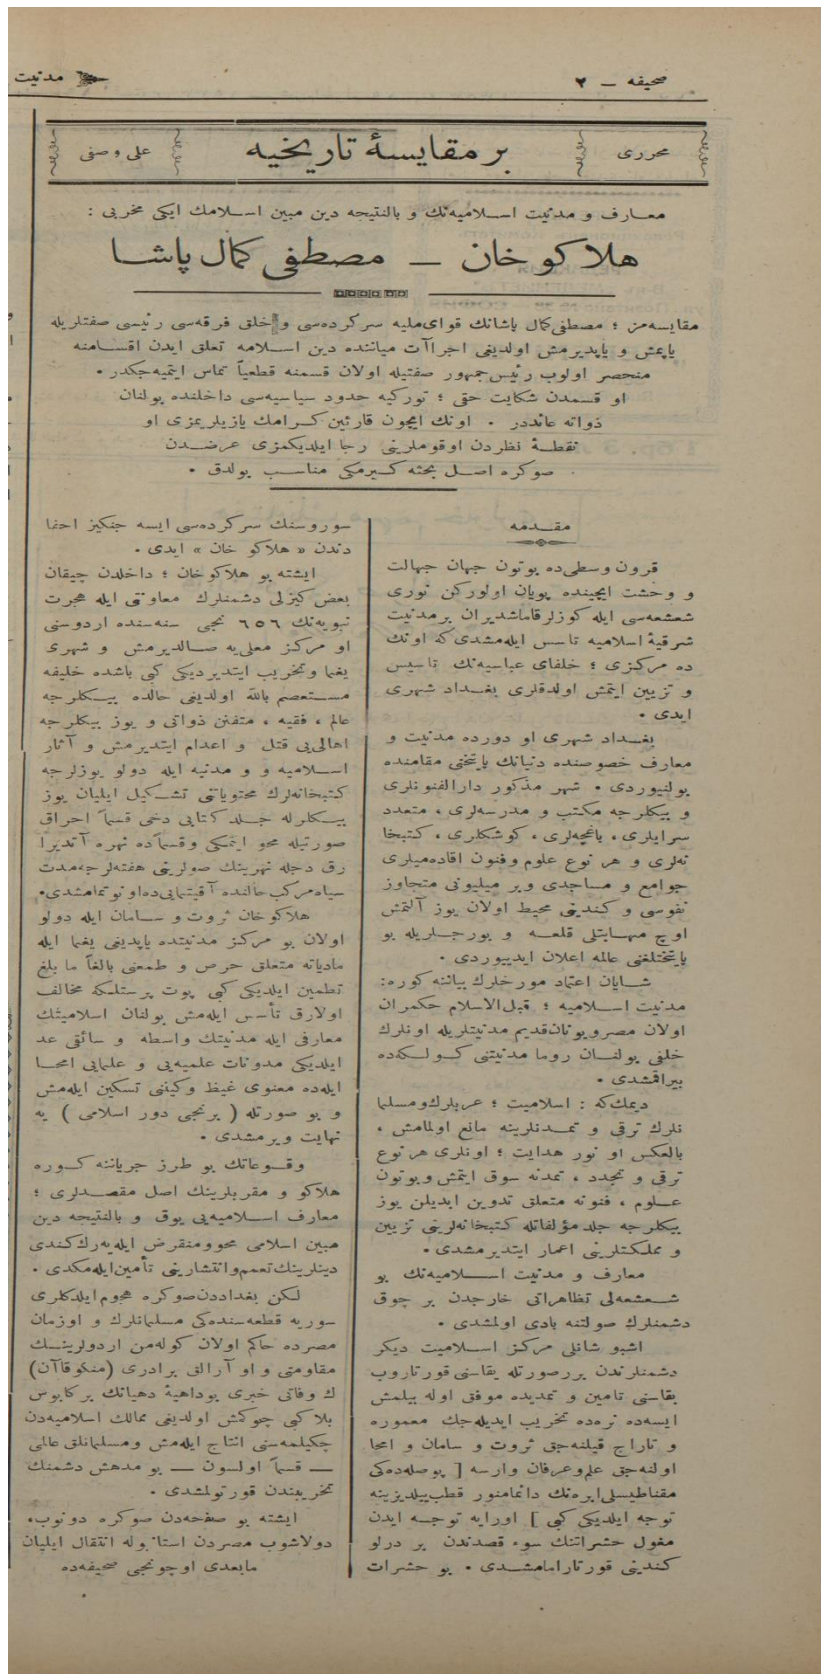 صحیفه – ٢
مدنیت
محرری
بر مقایسهٔ تاریخیه
علی وصفی
معارف و مدنیت اسلامیه‌نك و بالنتیجه دین مبین اسلامك ایكی مخربی :
هلاكو خان – مصطفی كمال پاشا
مقایسه‌مز ؛ مصطفی كمال پاشانك قوای‌ملیه سركرده‌سی و خلق فرقه‌سی رئیسی صفتلریله
یاپمش و یاپدیرمش اولدیغی اجراآت میاننده دین اسلامه تعلق ایدن اقسامنه
منحصر اولوب رئیس‌جمهور صفتیله اولان قسمنه قطعیاً تماس ایتمیه‌جكدر .
او قسمدن شكایت حقی ؛ توركیه حدود سیاسیه‌سی داخلنده بولنان
ذواته عائددر . اونك ایچون قارئین كرامك یازیلریمزی او
نقطهٔ نظردن اوقوملرینی رجا ایلدیكمزی عرضدن
صوكره اصل بحثه كیرمكی مناسب بولدق .
مقدمه
قرون وسطی‌ده بوتون جهان جهالت
و وحشت ایچینده پویان اولوركن نوری
شعشعه‌سی ایله كوزلر قاماشدیران بر مدنیت
شرقیهٔ اسلامیه تاسس ایله‌مشدی كه اونك
ده مركزی ؛ خلفای عباسیه‌نك تاسیس
و تزیین ایتمش اولدقلری بغداد شهری
ایدی .
بغداد شهری او دورده مدنیت و
معارف خصوصنده دنیانك پایتختی مقامنده
بولنیوردی . شهر مذكور دارالفنونلری
و بیكلرجه مكتب و مدرسه‌لری ، متعدد
سرایلری ، باغچه‌لری ، كوشكلری ، كتبخا
نه‌لری و هر نوع علوم وفنون اقاده‌میلری
جوامع و مساجدی وبر میلیونی متجاوز
نفوسی و كندینی محیط اولان یوز آلتمش
اوچ مهابتلی قلعه و بورجلریله بو
پایتختلغنی عالمه اعلان ایدییوردی .
شایان اعتماد مورخلرك بیاننه كوره:
مدنیت اسلامیه ؛ قبل‌الاسلام حكمران
اولان مصر و یونان‌قدیم مدنیتلریله اونلرك
خلفی بولنان روما مدنیتنی كولكه‌ده
بیراقمشدی .
دیمك‌كه : اسلامیت ؛ عربلرك‌ومسلما
نلرك ترقی و تمدنلرینه مانع اولمامش ،
بالعكس او نور هدایت ؛ اونلری هر نوع
ترقی و تجدد ، تمدنه سوق ایتمش وبوتون
علوم ، فنونه متعلق تدوین ایدیلن یوز
بیكلرجه جلد مؤلفاتله كتبخانه‌لرینی تزیین
و مملكتلرینی اعمار ایتدیرمشدی .
معارف و مدنیت اسلامیه‌نك بو
شعشعه‌لی تظاهراتی خارجدن بر چوق
دشمنلرك صولتنه بادی اولمشدی .
اشبو شانلی مركز اسلامیت دیكر
دشمنلرندن بررصورتله یقاسنی قورتاروب
بقاسنی تامین و تمدیده موفق اوله بیلمش
ایسه‌ده نره‌ده تخریب ایدیله‌جك معموره
و تاراج قیلنه‌جق ثروت و سامان و امحا
اولنه‌جق علم‌وعرفان وارسه [ پوصله‌ده‌كی
مقناطیسلی‌ابره‌نك دائمامنور قطب‌ییلدیزینه
توجه ایلدیكی كبی ] اورایه توجه ایدن
مغول حشراتنك سوء قصدندن بر درلو
كندینی قورتارامامشدی . بو حشرات
سوروسنك سركرده‌سی ایسه جنكیز احفا
دندن « هلاكو خان » ایدی .
ایشته بو هلاكو خان ؛ داخلدن چیقان
بعض كیزلی دشمنلرك معاونتی ایله هجرت
نبویه‌نك ٦٥٦ نجی سنه‌سنده اردوسنی
او مركز معلی‌یه صالدیرمش و شهری
یغما وتخریب ایتدیردیكی كبی باشده خلیفه
مستعصم بالله اولدیغی حالده بیكلرجه
عالم ، فقیه ، متفنن ذواتی و یوز بیكلرجه
اهالی‌یی قتل و اعدام ایتدیرمش و آثار
اسلامیه و و مدنیه ایله دولو یوزلرجه
كتبخانه‌لرك محتویاتنی تشكیل ایلیان یوز
بیكلرله جلد كتابی دخی قسماً احراق
صورتیله محو ایتمكی وقسماًده نهره آتدیرا
رق دجله نهرینك صولرینی هفته‌لرجه‌مدت
سیاه‌مركب حالنده آقیتمایی‌ده‌اونوتمامشدی.
هلاكو خان ثروت و سامان ایله دولو
اولان بو مركز مدنیتده یاپدیغی یغما ایله
مادیاته متعلق حرص و طمعنی بالغاً ما بلغ
تطمین ایلدیكی كبی پوت پرستلكه مخالف
اولارق تأسس ایله‌مش بولنان اسلامیتك
معارفی ایله مدنیتك واسطه و سائقی عد
ایلدیكی مدونات علمیه‌یی و علمایی امحا
ایله‌ده معنوی غیظ وكیننی تسكین ایله‌مش
و بو صورتله ( برنجی دور اسلامی ) یه
نهایت ویرمشدی .
وقوعاتك بو طرز جریاننه كوره
هلاكو و مقربلرینك اصل مقصدلری ؛
معارف اسلامیه‌یی یوق و بالنتیجه دین
مبین اسلامی محوومنقرض ایله‌یه‌رك‌كندی
دینلرینك‌تعمم‌وانتشارینی تأمین‌ایله‌مكدی .
لكن بغداددن‌صوكره هجوم‌ایلدكلری
سوریه قطعه‌سنده‌كی مسلمانلرك و اوزمان
مصرده حاكم اولان كوله‌من اردولرینك
مقاومتی و او آرالق برادری (منكوقاآن)
ك وفاتی خبری بوداهیهٔ دهیانك بر كابوس
بلا كبی چوكمش اولدیغی ممالك اسلامیه‌دن
چكیلمه‌سنی انتاج ایله‌مش ومسلمانلق عالمی
— قسماً اولسون — بو مدهش دشمنك
تخریبندن قورتولمشدی .
ایشته بو صفحه‌دن صوكره دونوب،
دولاشوب مصردن استانبوله انتقال ایلیان
مابعدی اوچونجی صحیفه‌ده